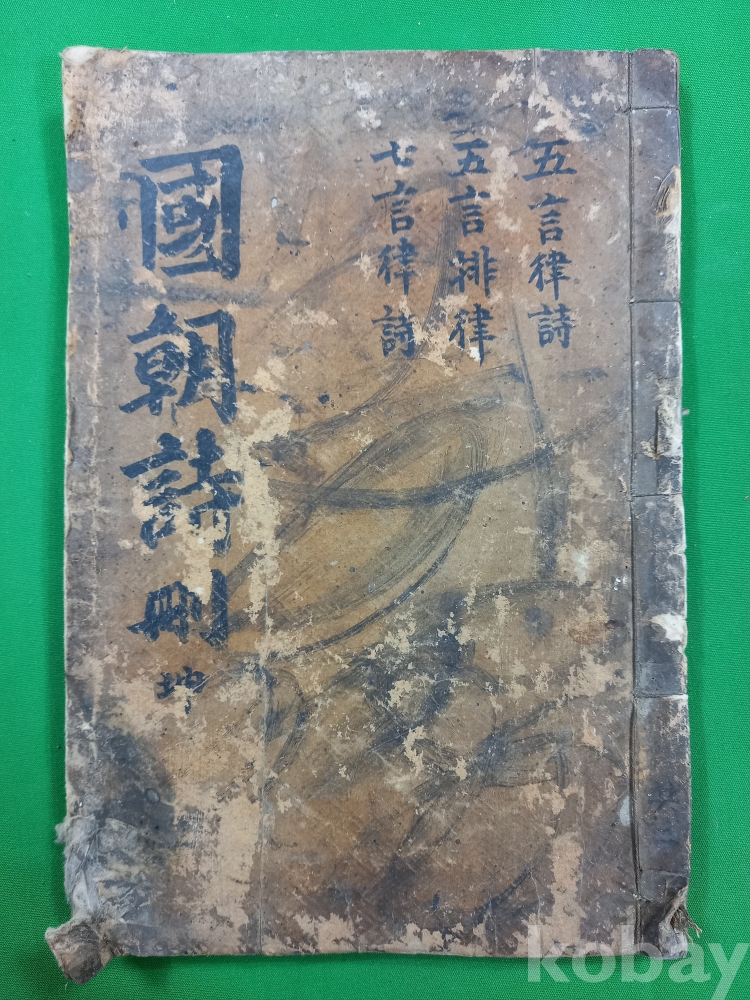 五言律詩
五言排律
七言律詩
國朝詩刪 坤
kobay